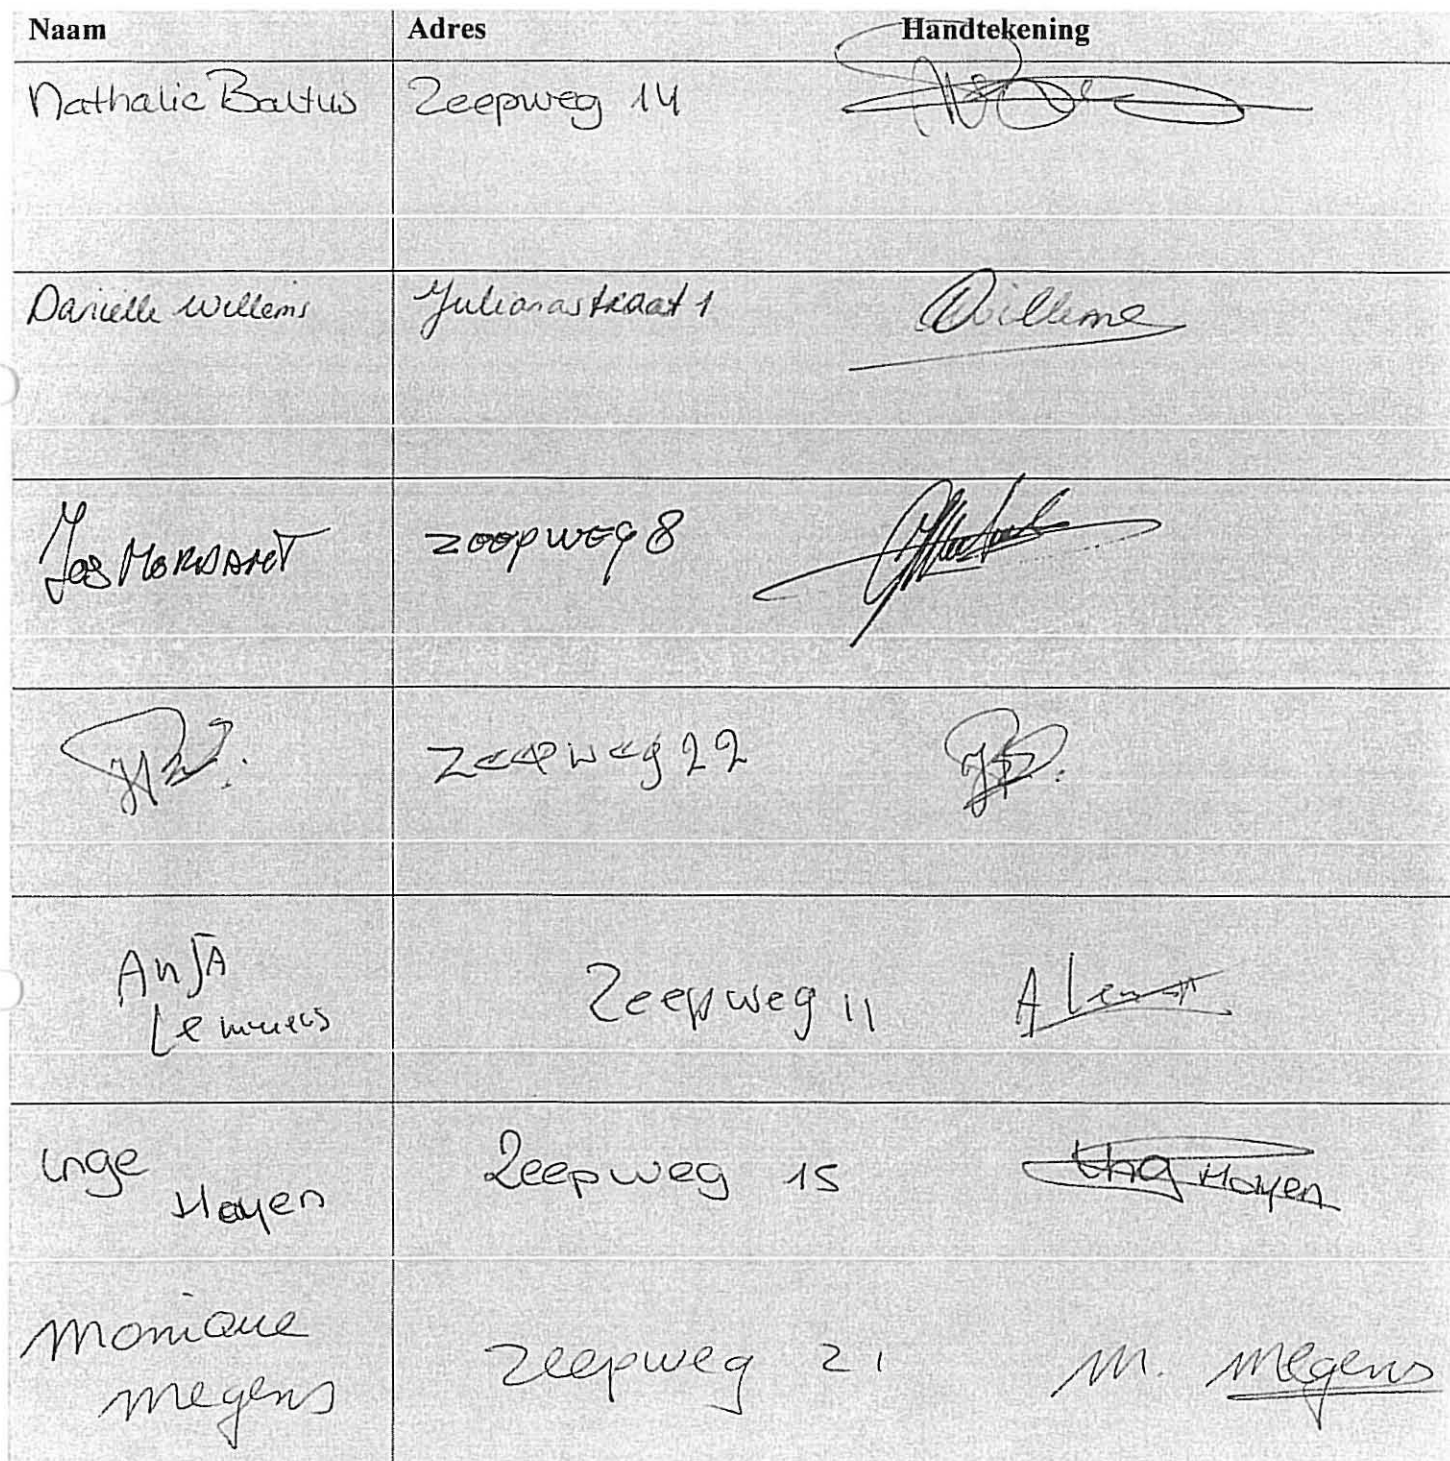 Naam Adres Handtekening
Nathalie Baltus Zeepweg 14
Danielle Willems Julianastraat 1 Willems
Jos MORDANT zeepweg 8
zeepweg 22
AnJA Zeepweg 11 A
Lemmens
Inge Zeepweg 15 Ing Hayen
Hayen
Monique Zeepweg 21 M. Megens
Megens